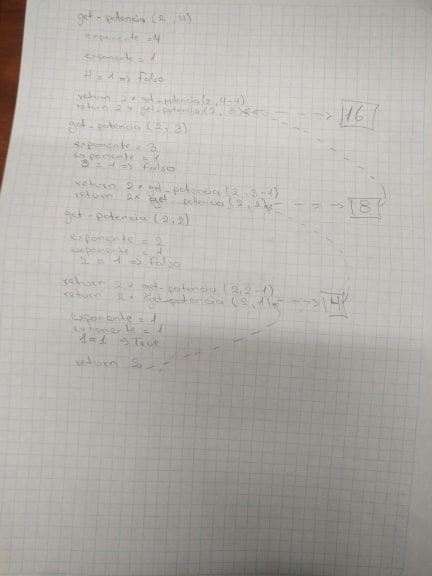 get-potencia (2,4)
exponente = 4
exponente = 1
4 = 1 => Falso
return 2 * get-potencia (2, 4-1)
return 2 * get-potencia (2, 3) 16
get-potencia (2, 3)
exponente = 3
exponente = 1
3 = 1 => Falso
return 2 * get-potencia (2, 3-1)
return 2 * get-potencia (2, 2) 8
get-potencia (2,2)
exponente = 2
exponente = 1
2 = 1 => Falso
return 2 * get-potencia (2, 2-1)
return 2 * get-potencia (2, 1) 4
exponente = 1
exponente = 1
1=1 => True
return 2